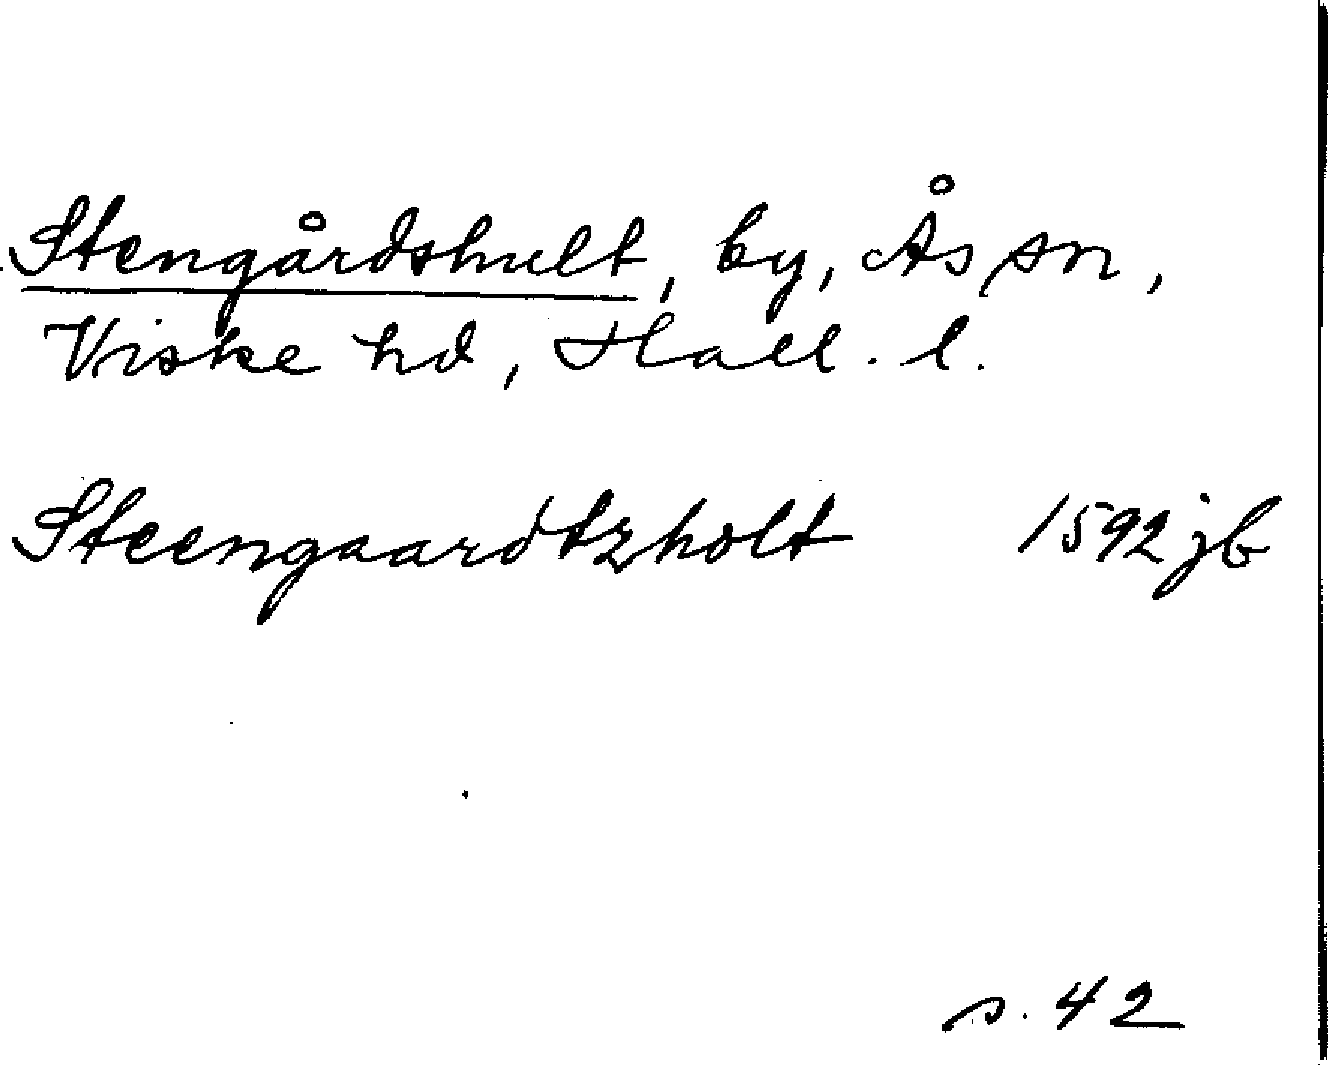 Stengårdshult, by, Ås sn,
Viske hd, Hall. l.
Steengaardtzholt 1592 jb
s. 42